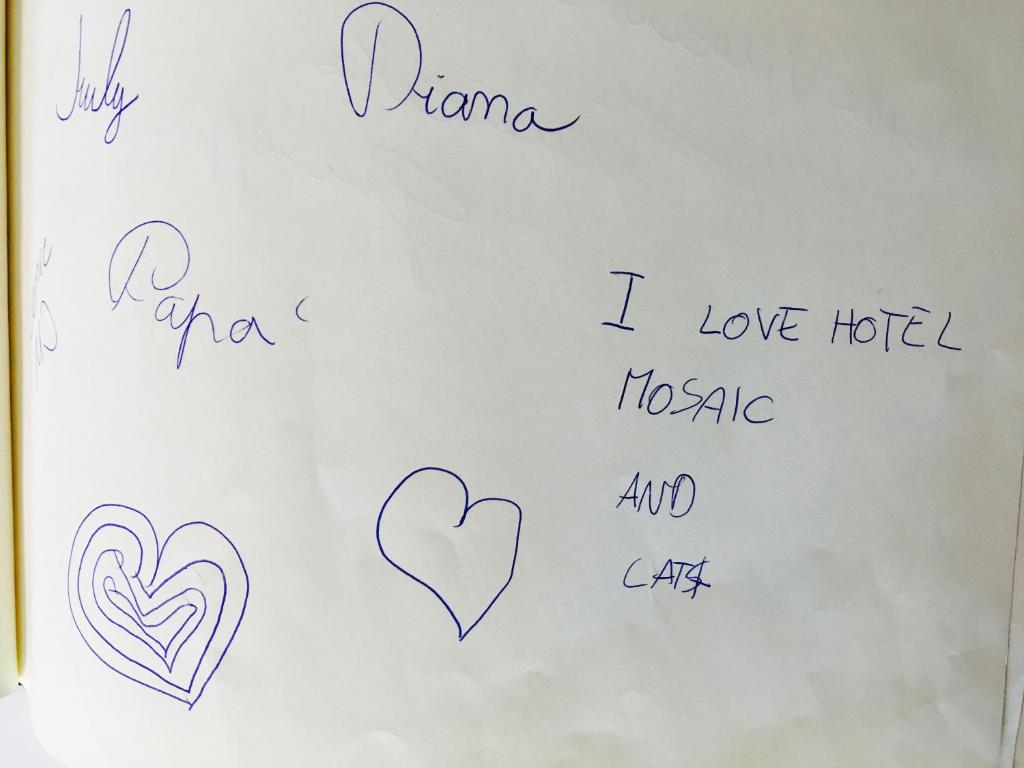 July Diana
Papa'
I LOVE HOTEL
MOSAIC
AND
CATS